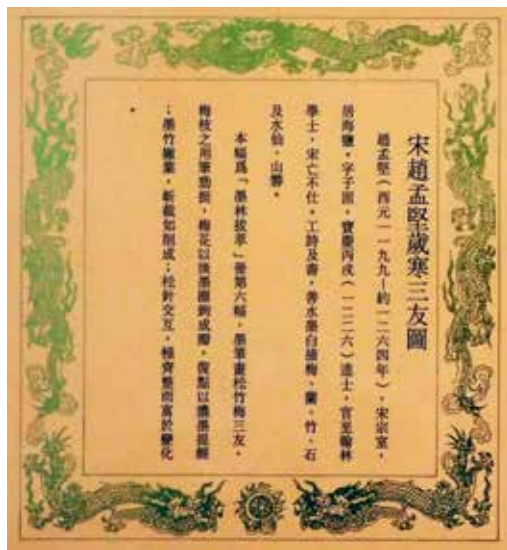 宋趙孟堅歲寒三友圖
趙孟堅(西元一一九九—約一二六四年),宋宗室。
居海鹽。字子固。寶慶丙戌(一二二六)進士,官至翰林
學士,宋亡不仕。工詩及書,善水墨白描梅、蘭、竹、石
及水仙、山礬。
本幅爲「墨林拔萃」冊第六幅。墨筆畫松竹梅三友。
梅枝之用筆勁挺,梅花以淡墨圈鉤成瓣,復點以濃墨提醒
;墨竹撇葉,斬截如削成;松針交互,極齊整而富於變化
。